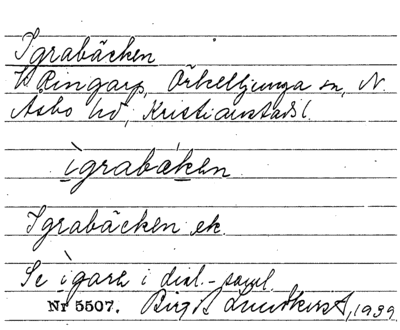 Igrabäcken
t Ringarp, Örkelljunga sn, N.
Åsbo hd, Kristianstads l.
ìgrabäken
Igrabäcken ek.
Se ìgark i dial.-saml.
Nr 5507. Birgit Lundkvist, 1939